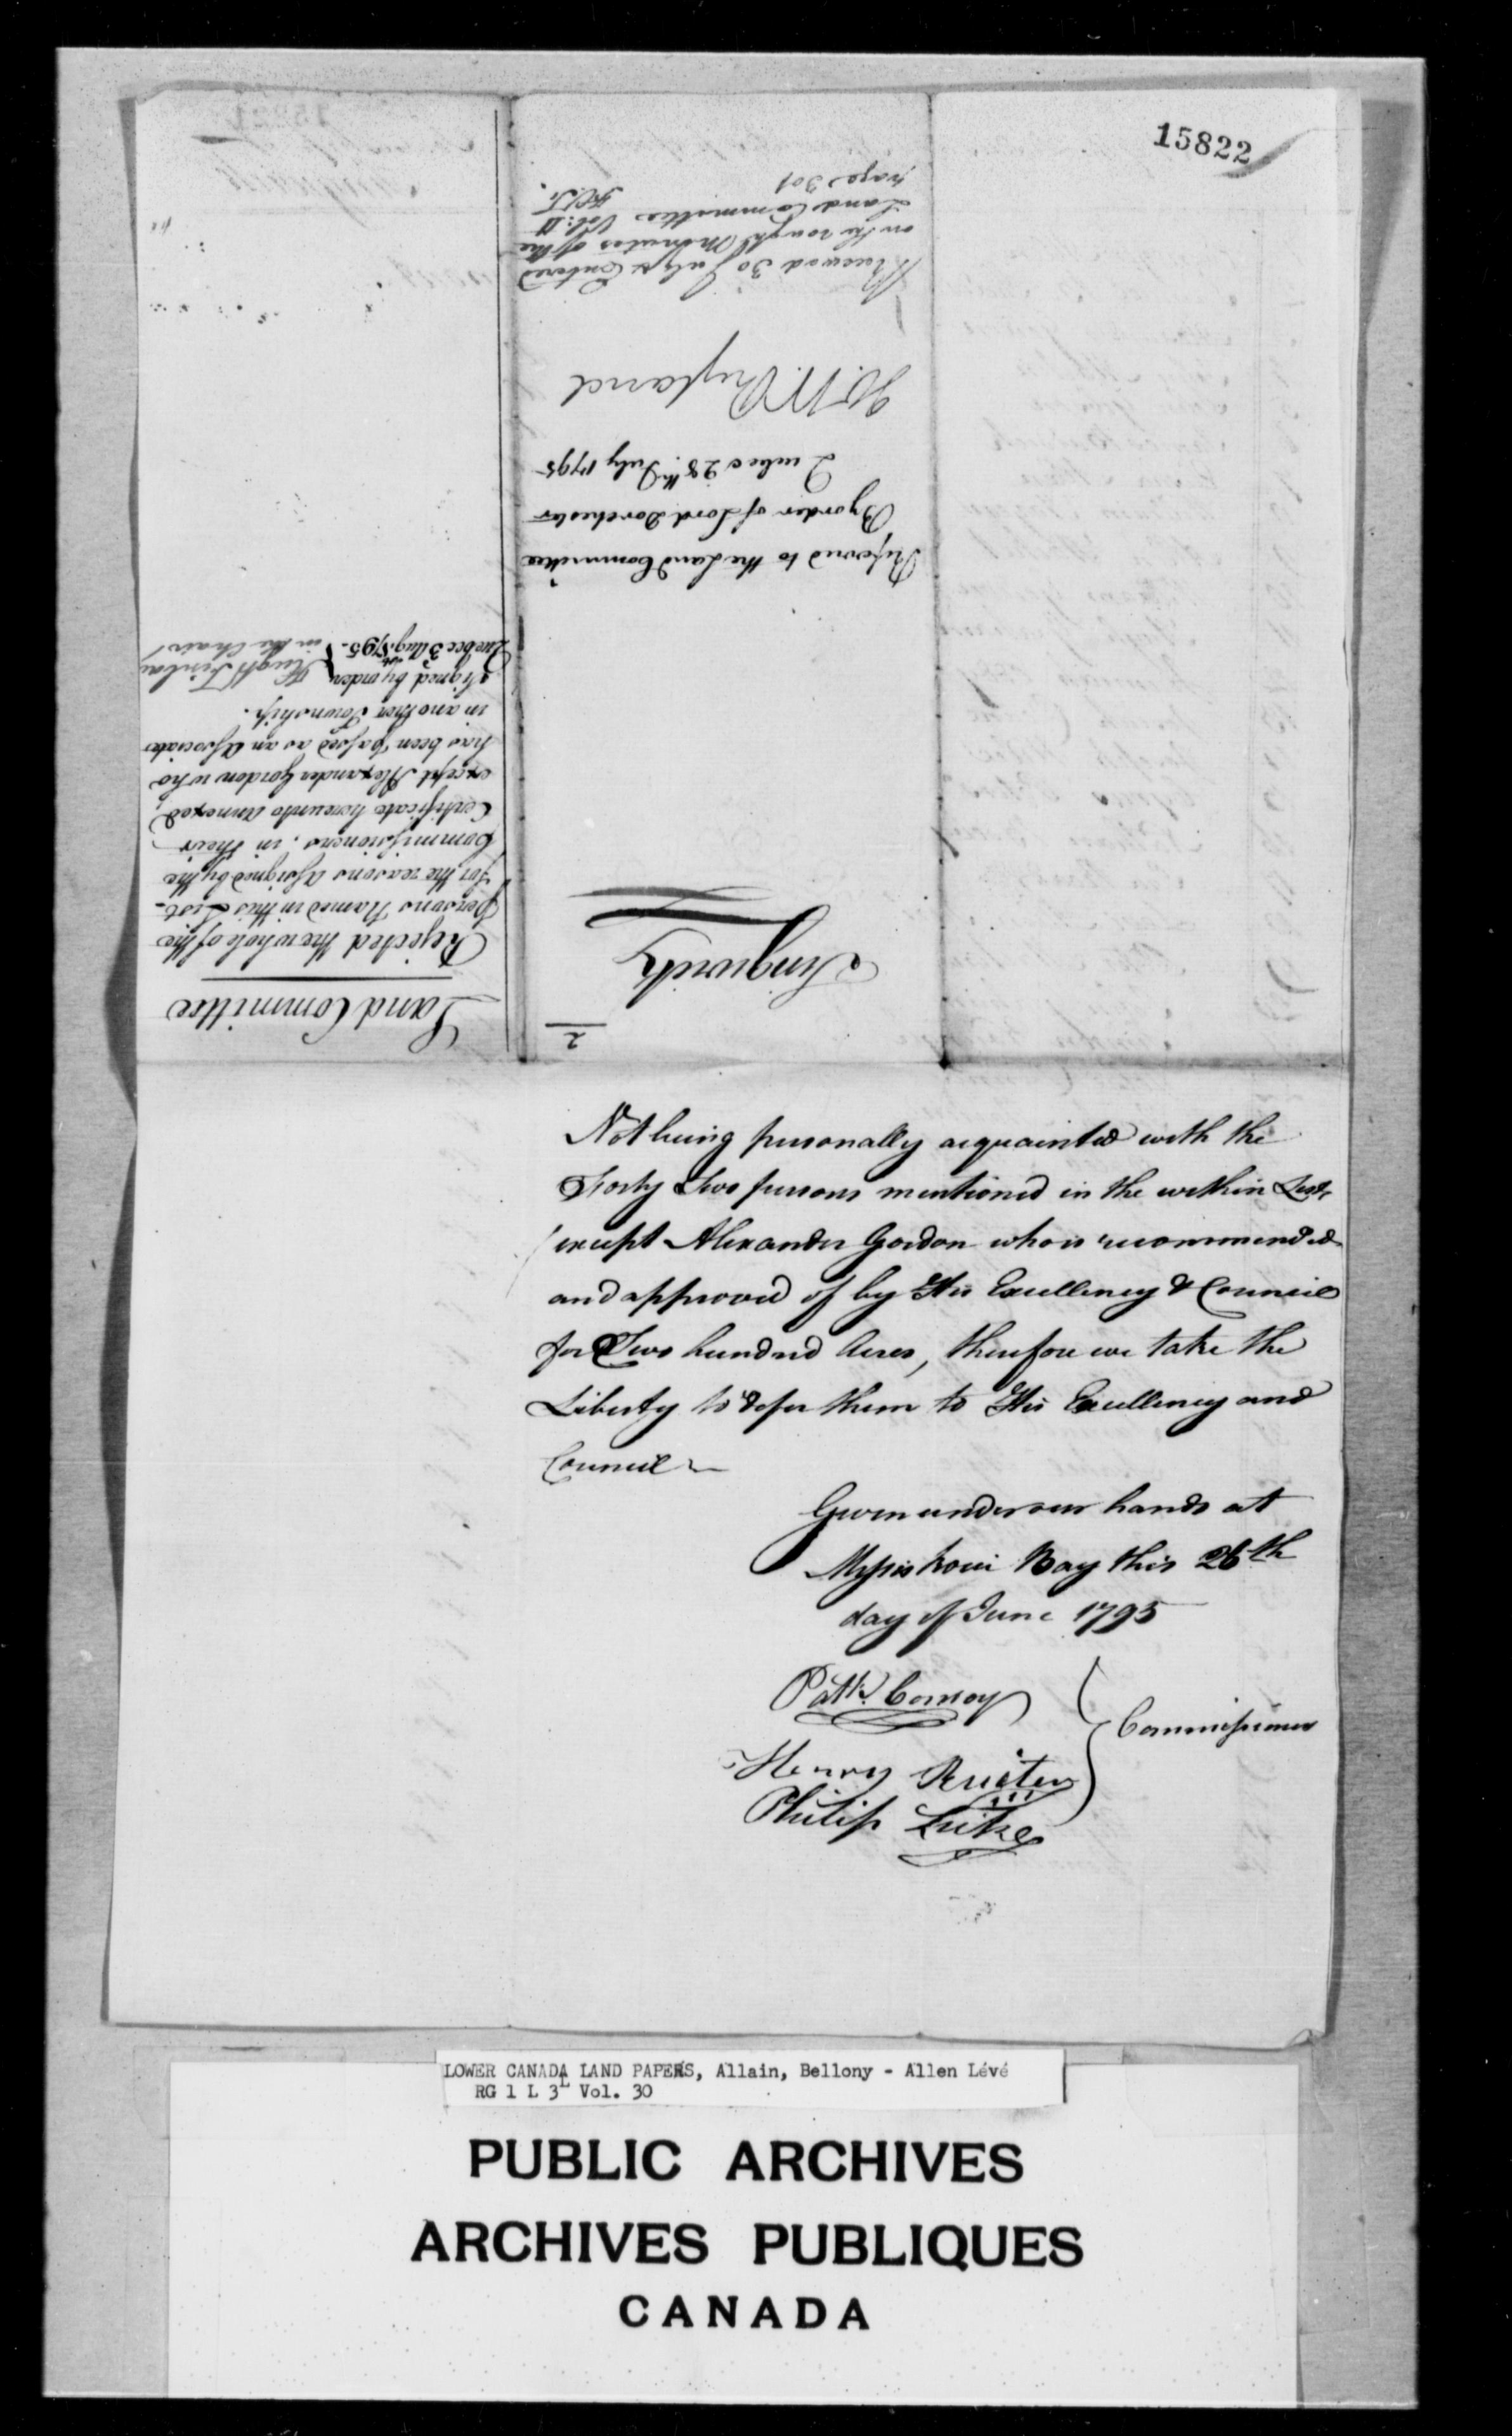 15822
Land Committee
Rejected the whole of the
persons Named in this List
for the reasons assigned by the
Commissioners, in their
Certificate hereunto annexed,
except Alexander Gordon who
has been passed as an associate
in another Township.
Signed by order
Quebec 3 Augst 1795.
Hugh Finlay
in the Chair
2
Lingwick
Referred to the Land Committee
By order of Lord Dorchester
Quebec 28th July 1795
H.W. Ryland
Received 30 July & Entered
on the rough Minutes of the
Land Committee Vol: II
page 301
Not being personally acquainted with the
Forty Two persons mentioned in the within List,
except Alexander Gordon who is recommended
and approved of by His Excellency & Council
for Two hundred Acres, therefore we take the
Liberty to Refer them to His Excellency and
Council
Given under our hands at
Missiskoui Bay this 26th
day of June 1795
Patk. Conroy
Henry Ruiter
Philip Luke
Commissioners
LOWER CANADA LAND PAPERS, Allain, Bellony - Allen Lévé
RG 1 L 3L Vol. 30
PUBLIC ARCHIVES
ARCHIVES PUBLIQUES
CANADA